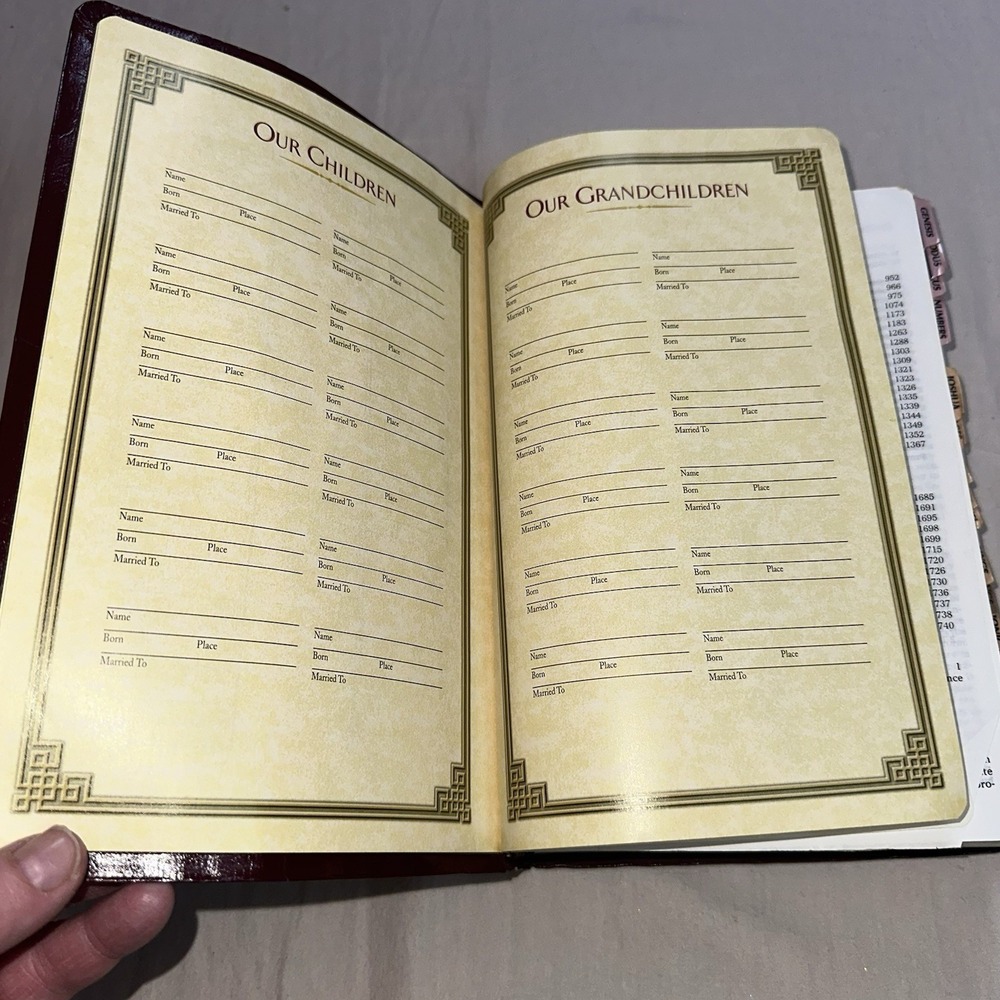 OUR CHILDREN
Name
Born Place
Married To
Name
Born Place
Married To
Name
Born Place
Married To
Name
Born Place
Married To
Name
Born Place
Married To
Name
Born Place
Married To
Name
Born Place
Married To
Name
Born Place
Married To
Name
Born Place
Married To
Name
Born Place
Married To
Name
Born Place
Married To
Name
Born Place
Married To
OUR GRANDCHILDREN
Name
Born Place
Married To
Name
Born Place
Married To
Name
Born Place
Married To
Name
Born Place
Married To
Name
Born Place
Married To
Name
Born Place
Married To
Name
Born Place
Married To
Name
Born Place
Married To
Name
Born Place
Married To
Name
Born Place
Married To
Name
Born Place
Married To
Name
Born Place
Married To
952
966
975
1074
1173
1183
1263
1288
1303
1309
1321
1323
1326
1335
1339
1344
1349
1352
1367
1685
1691
1695
1698
1699
1715
1720
1726
730
736
737
738
740
GENESIS
NUMBERS
JOSHUA